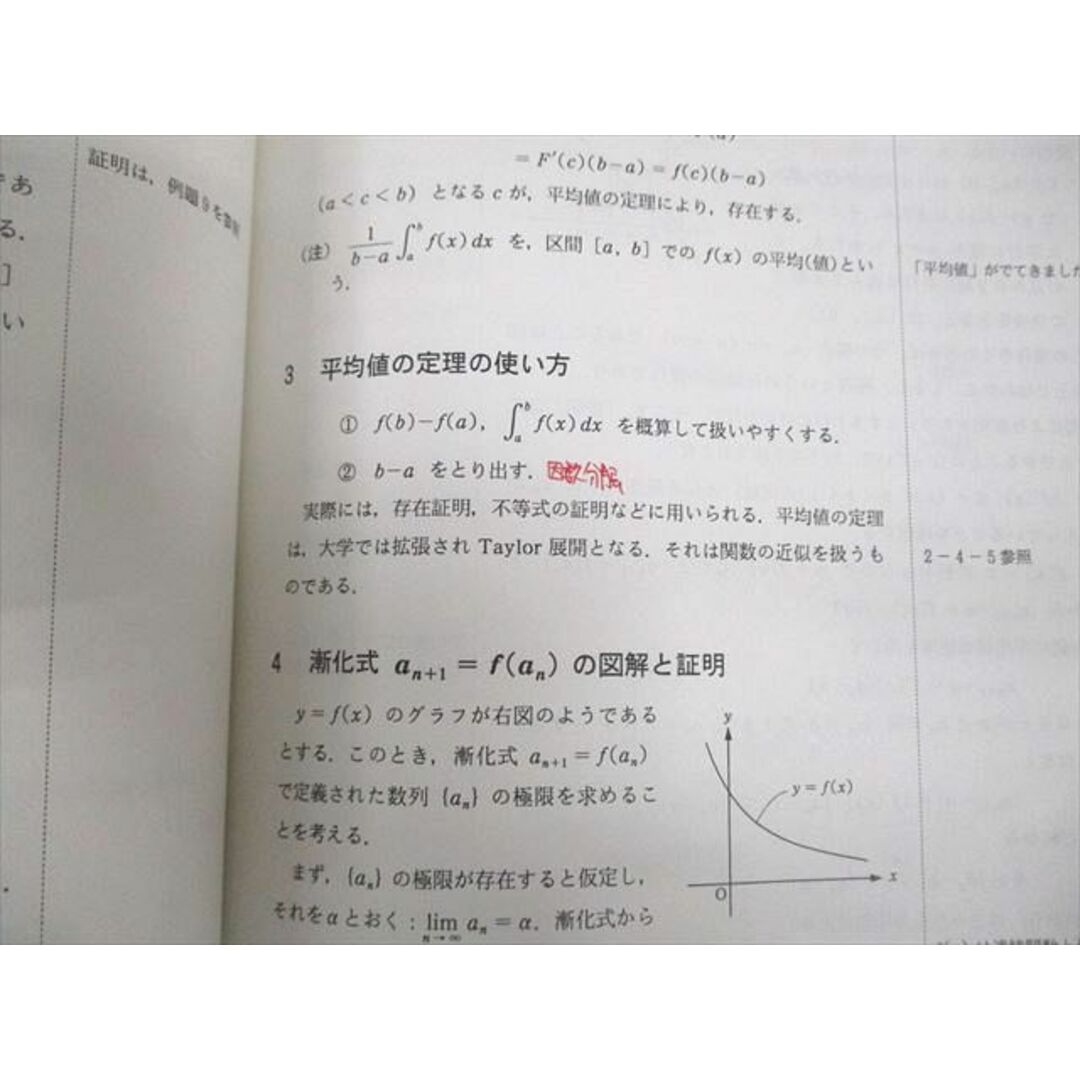 あ
る.
]
い
証明は, 例題9を参照
= F'(c)(b-a) = f(c)(b-a)
(a<c<b) となるcが, 平均値の定理により, 存在する.
(注) 1/(b-a) ∫_a^b f(x)dx を, 区間 [a, b] での f(x) の平均(値)とい
う.
「平均値」がでてきました
3 平均値の定理の使い方
① f(b)-f(a), ∫_a^b f(x)dx を概算して扱いやすくする.
② b-a をとり出す. 因数分解
実際には, 存在証明, 不等式の証明などに用いられる. 平均値の定理
は, 大学では拡張され Taylor 展開となる. それは関数の近似を扱うも
のである.
2-4-5参照
4 漸化式 a_{n+1} = f(a_n) の図解と証明
y=f(x) のグラフが右図のようである
とする. このとき, 漸化式 a_{n+1} = f(a_n)
で定義された数列 {a_n} の極限を求めるこ
とを考える.
まず, {a_n} の極限が存在すると仮定し,
それをαとおく : lim_{n→∞} a_n = α. 漸化式から
y
y=f(x)
O
x